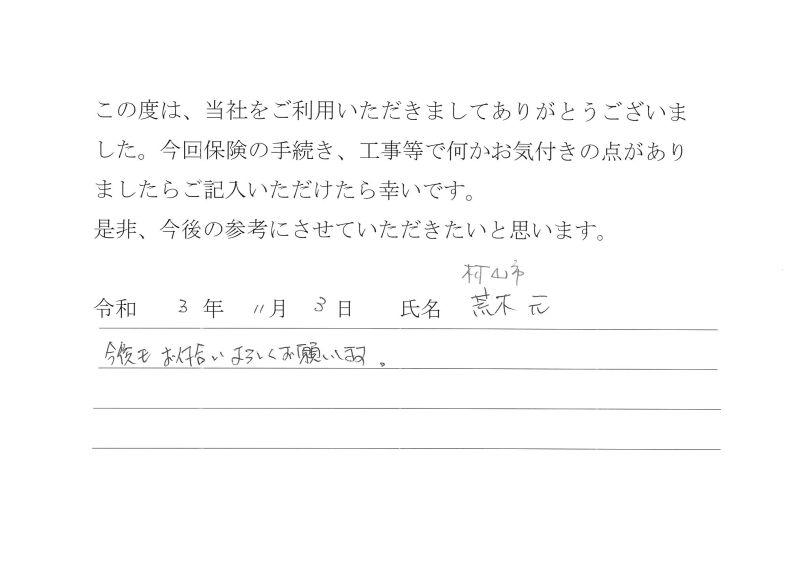 この度は、当社をご利用いただきましてありがとうございま
した。今回保険の手続き、工事等で何かお気付きの点があり
ましたらご記入いただけたら幸いです。
是非、今後の参考にさせていただきたいと思います。
村山市
令和 3 年 11 月 3 日 氏名 荒木 元
今後も お付合い よろしくお願いします。